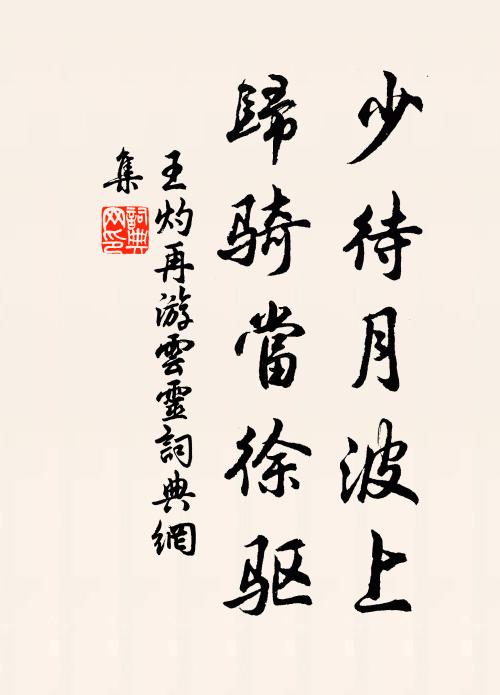 少待月波上
歸骑當徐驱
王灼再游雲靈詞典網
集
詞典网印